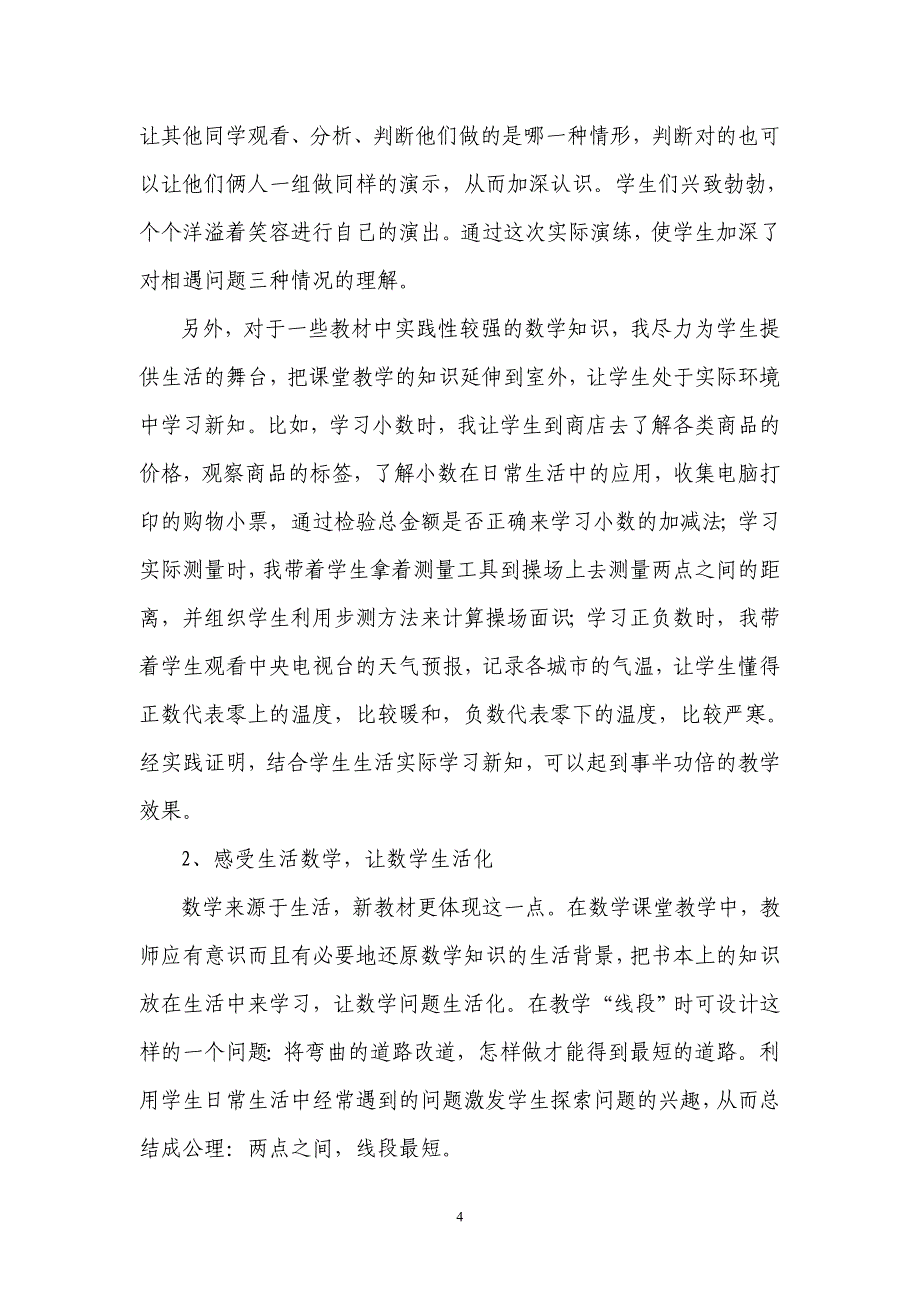 让其他同学观看、分析、判断他们做的是哪一种情形，判断对的也可
以让他们俩人一组做同样的演示，从而加深认识。学生们兴致勃勃，
个个洋溢着笑容进行自己的演出。通过这次实际演练，使学生加深了
对相遇问题三种情况的理解。
另外，对于一些教材中实践性较强的数学知识，我尽力为学生提
供生活的舞台，把课堂教学的知识延伸到室外，让学生处于实际环境
中学习新知。比如，学习小数时，我让学生到商店去了解各类商品的
价格，观察商品的标签，了解小数在日常生活中的应用，收集电脑打
印的购物小票，通过检验总金额是否正确来学习小数的加减法；学习
实际测量时，我带着学生拿着测量工具到操场上去测量两点之间的距
离，并组织学生利用步测方法来计算操场面识；学习正负数时，我带
着学生观看中央电视台的天气预报，记录各城市的气温，让学生懂得
正数代表零上的温度，比较暖和，负数代表零下的温度，比较严寒。
经实践证明，结合学生生活实际学习新知，可以起到事半功倍的教学
效果。
2、感受生活数学，让数学生活化
数学来源于生活，新教材更体现这一点。在数学课堂教学中，教
师应有意识而且有必要地还原数学知识的生活背景，把书本上的知识
放在生活中来学习，让数学问题生活化。在教学“线段”时可设计这
样的一个问题：将弯曲的道路改道，怎样做才能得到最短的道路。利
用学生日常生活中经常遇到的问题激发学生探索问题的兴趣，从而总
结成公理：两点之间，线段最短。
4